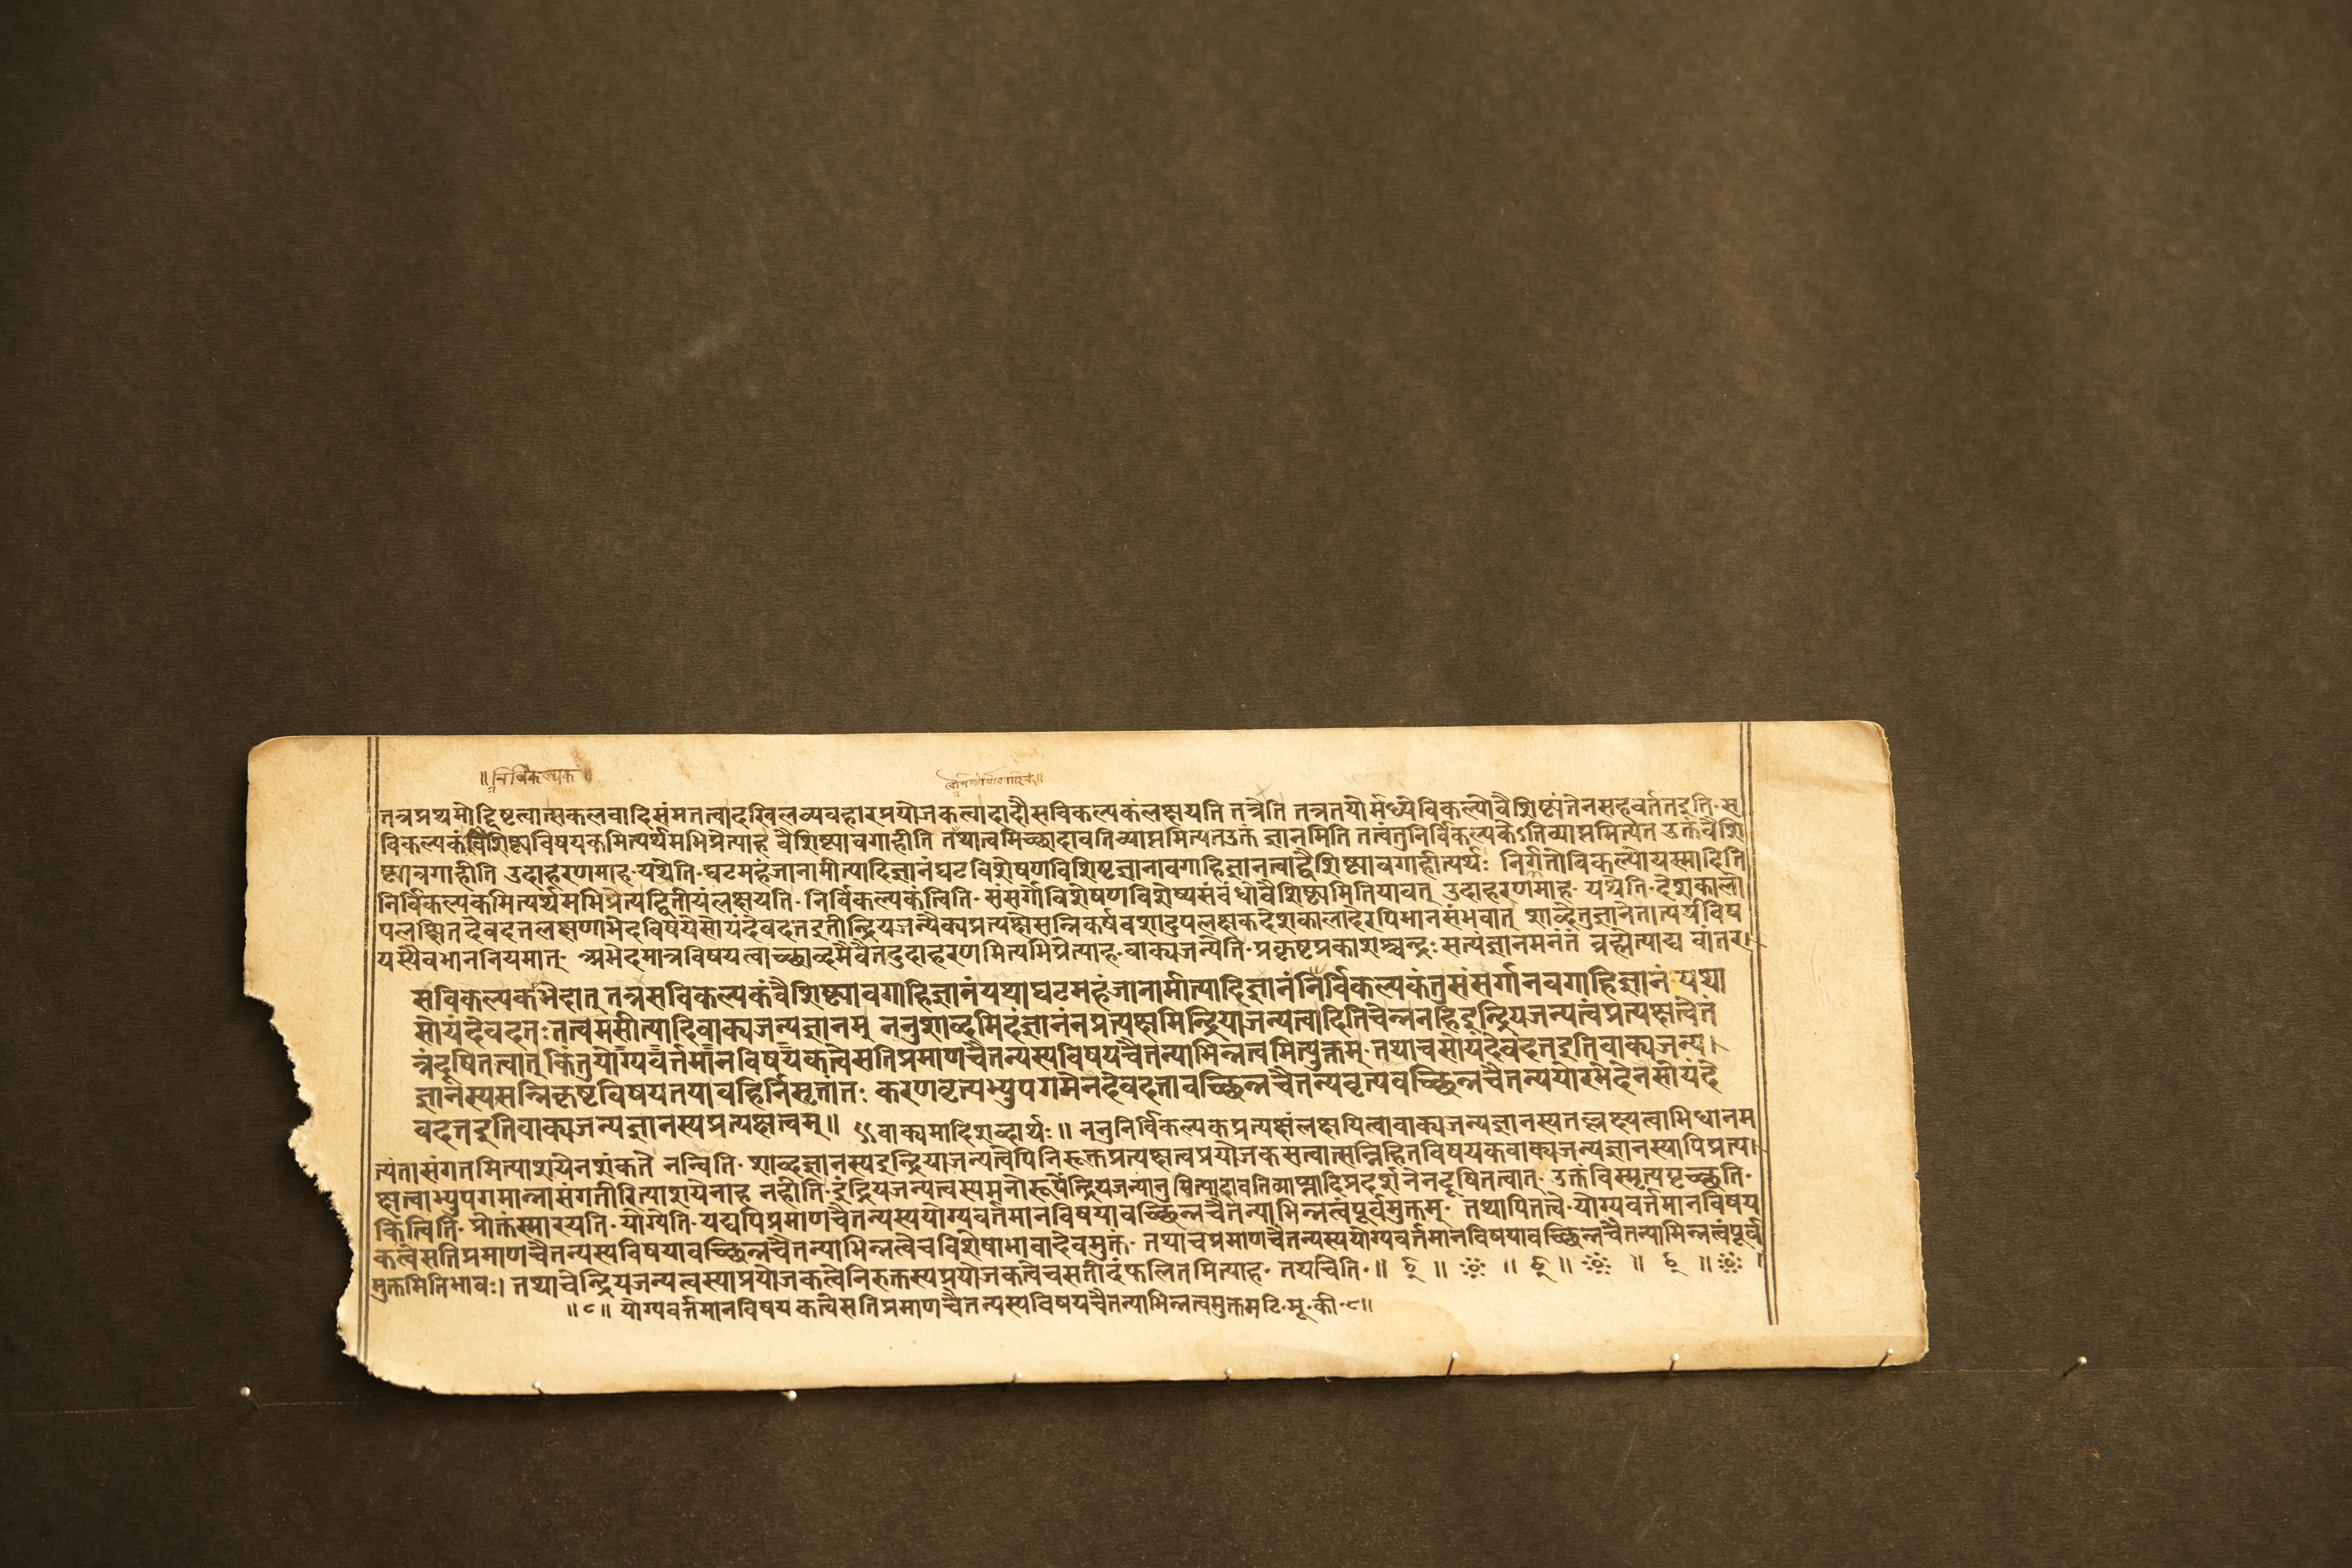 ॥निर्विकल्पक॥
तत्रप्रथमोद्दिष्टत्वात्सकलवादिसंमतत्वादखिलव्यवहारप्रयोजकत्वाद्वादौसविकल्पकंलक्षयति तत्रेति तत्रतयोर्मध्येविकल्पोवैशिष्ट्यंतेनसहवर्ततइति॰स
विकल्पकंवैशिष्ट्यविषयकमित्यर्थमभिप्रेत्याह वैशिष्ट्यावगाहीति तथात्वमिच्छादावतिव्याप्तमित्यतउक्तं ज्ञानमिति तत्वंतुनिर्विकल्पकेऽतिव्याप्तमित्यत उक्तंवैशि
ष्ट्यावगाहीति उदाहरणमाह॰यथेति॰घटमहंजानामीत्यादिज्ञानंघटविशेषणविशिष्टज्ञानावगाहिज्ञानत्वाद्वैशिष्ट्यावगाहीत्यर्थः निर्गतोविकल्पोयस्मादिति
निर्विकल्पकमित्यर्थमभिप्रेत्यद्वितीयंलक्षयति॰निर्विकल्पकंत्विति॰संसर्गोविशेषणविशेष्यसंबंधोवैशिष्ट्यमितियावत् उदाहरणमाह॰यथेति॰देशकालो
पलक्षितदेवदत्तलक्षणाभेदविषयेसोयंदेवदत्तइतीन्द्रियजन्यैक्यप्रत्यक्षेसन्निकर्षवशादुपलक्षकदेशकालादेरपिभानसंभवात् शाब्देतुज्ञानेतात्पर्यविष
यस्यैवभाननियमात्॰अभेदमात्रविषयत्वाच्छाब्दमेवैतदुदाहरणमित्यभिप्रेत्याह॰वाक्यजन्येति॰प्रकृष्टप्रकाशश्चन्द्रःसत्यंज्ञानमनंतं ब्रह्मेत्याद्य वांतर।
सविकल्पकभेदात् तत्रसविकल्पकंवैशिष्ट्यावगाहिज्ञानंयथाघटमहंजानामीत्यादिज्ञानंनिर्विकल्पकंतुसंसर्गानवगाहिज्ञानं यथा
सोयंदेवदत्तःतत्वमसीत्यादिवाक्यजन्यज्ञानम् ननुशाब्दमिदंज्ञानंनप्रत्यक्षमिन्द्रियाजन्यत्वादितिचेन्ननहिइन्द्रियजन्यत्वंप्रत्यक्षत्वेतं
त्रंदूषितत्वात् किंतुयोग्यवर्तमानविषयकत्वेसतिप्रमाणचैतन्यस्यविषयचैतन्याभिन्नत्वमित्युक्तम्॰तथाचसोयंदेवदत्तइतिवाक्यजन्य।
ज्ञानस्यसन्निकृष्टविषयतयाबहिर्निसृतांतः करणवृत्यभ्युपगमेनदेवदत्तावच्छिन्नचैतन्यवृत्यवच्छिन्नचैतन्ययोरभेदेनसोयंदे
वदत्तइतिवाक्यजन्यज्ञानस्यप्रत्यक्षत्वम्॥ वाक्यमादिशब्दार्थः॥ ननुनिर्विकल्पकप्रत्यक्षंलक्षयित्वावाक्यजन्यज्ञानस्यतल्लक्ष्यत्वाभिधानम
त्यंतासंगतमित्याशयेनशंकते नन्विति॰शाब्दज्ञानस्यइन्द्रियाजन्यत्वेपिनिरुक्तप्रत्यक्षत्वप्रयोजकसत्वात्सन्निहितविषयकवाक्यजन्यज्ञानस्यापिप्रत्य।
क्षत्वाभ्युपगमान्नासंगतीरित्याशयेनाह नहीति॰इंद्रियजन्यत्वस्यमनोरूपेन्द्रियजन्यानुमित्यादावतिव्याप्त्यादिप्रदर्शनेनदूषितत्वात्॰उक्तंविस्मृत्यपृच्छति॰
किंत्विति॰प्रोक्तंस्मारयति॰योग्येति॰यद्यपिप्रमाणचैतन्यस्ययोग्यवर्तमानविषयावच्छिन्नचैतन्याभिन्नत्वंपूर्वमुक्तम्॰ तथापितत्वे॰योग्यवर्तमानविषय
कत्वेसतिप्रमाणचैतन्यस्यविषयावच्छिन्नचैतन्याभिन्नत्वेचविशेषाभावादेवमुक्तं॰ तथाचप्रमाणचैतन्यस्ययोग्यवर्तमानविषयावच्छिन्नचैतन्याभिन्नत्वंपूर्व
मुक्तमितिभावः। तथाचेन्द्रियजन्यत्वस्याप्रयोजकत्वेनिरुक्तस्यप्रयोजकत्वेचसतीदंफलितमित्याह॰ तथाचेति॰॥
॥९॥ योग्यवर्तमानविषयकत्वेसतिप्रमाणचैतन्यस्यविषयचैतन्याभिन्नत्वमुक्तमटि॰मू॰की॰९॥